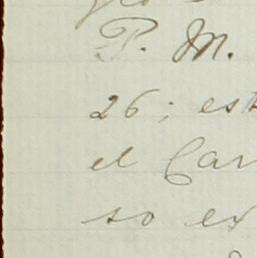 P. M.
26; est
el Car
so ex